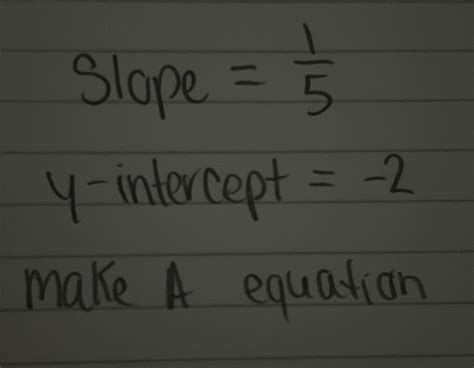 Slope = 1/5
y-intercept = -2
make A equation